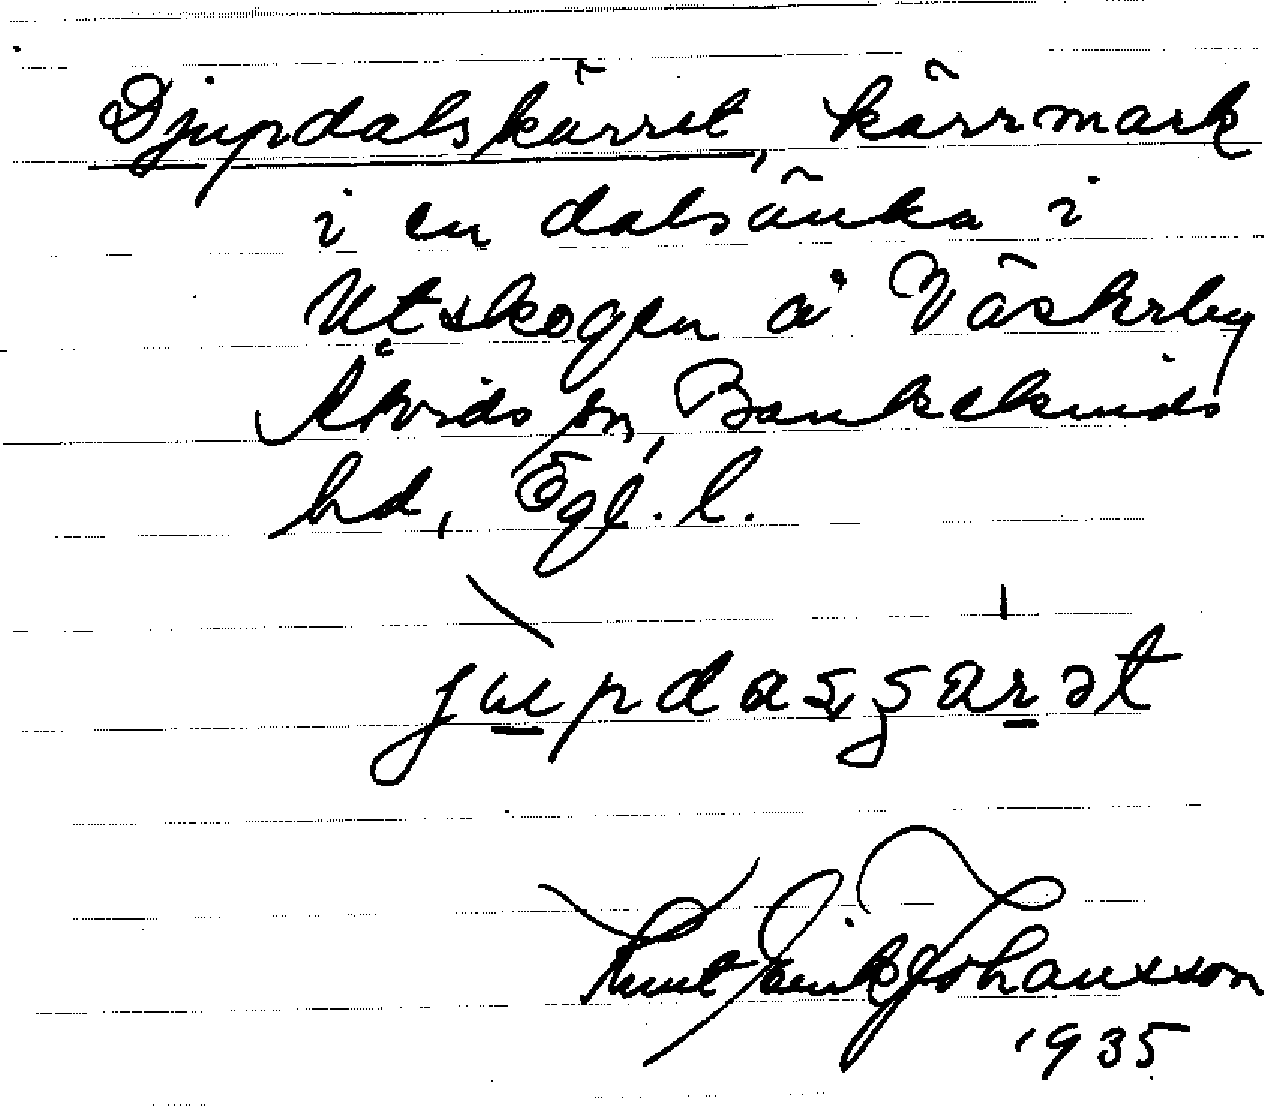 Djupdalskärret, kärrmark
i en dalsänka i
Utskogen å Väskrby
Åtvids sn, Bankekinds
hd, Ögl. l.
ju̲pdasʂar̲ət
Knut Erik Johansson
1935